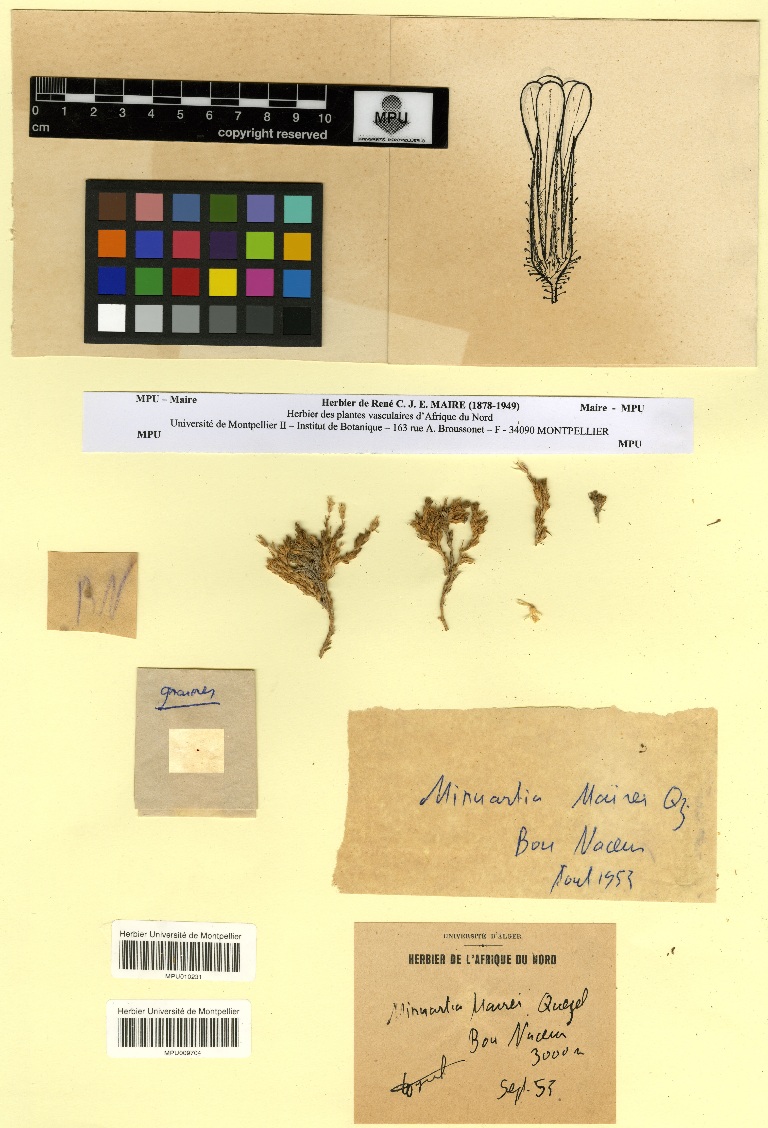 0 1 2 3 4 5 6 7 8 9 10
cm
copyright reserved
MPU
MPU – Maire
Herbier de René C. J. E. MAIRE (1878-1949)
Maire - MPU
Herbier des plantes vasculaires d'Afrique du Nord
Université de Montpellier II – Institut de Botanique – 163 rue A. Broussonet – F - 34090 MONTPELLIER
MPU
MPU
graines
Minuartia Mairei Qz
Bou Naceur
Aout 1953
Herbier Université de Montpellier
MPU010231
Herbier Université de Montpellier
MPU009704
UNIVERSITÉ D'ALGER
HERBIER DE L'AFRIQUE DU NORD
Minuartia Mairei Quezel
Bou Naceur
3000 m
Sept. 53